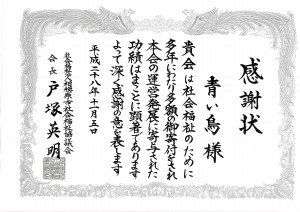 感謝状
青い鳥 様
貴会は社会福祉のために
多年にわたり多額の御寄付をされ
本会の運営発展に寄与された
功績はまことに顕著であります
よって深く感謝の意を表します
平成二十八年十一月五日
社会福祉法人相模原市社会福祉協議会
会長 戸塚英明